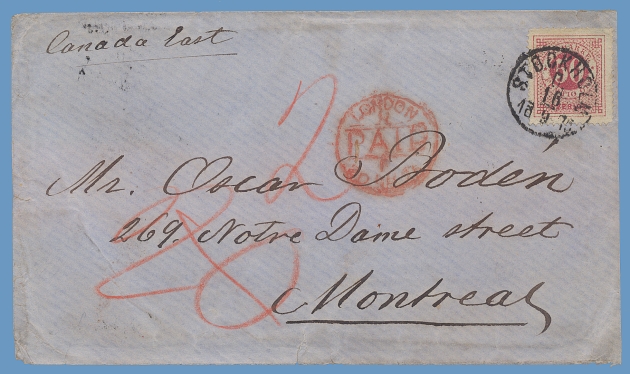 Canada East
50
STOCKHOLM
18
LONDON
PAID
2
Mr. Oscar Boden
269. Notre Dame street
Montreal